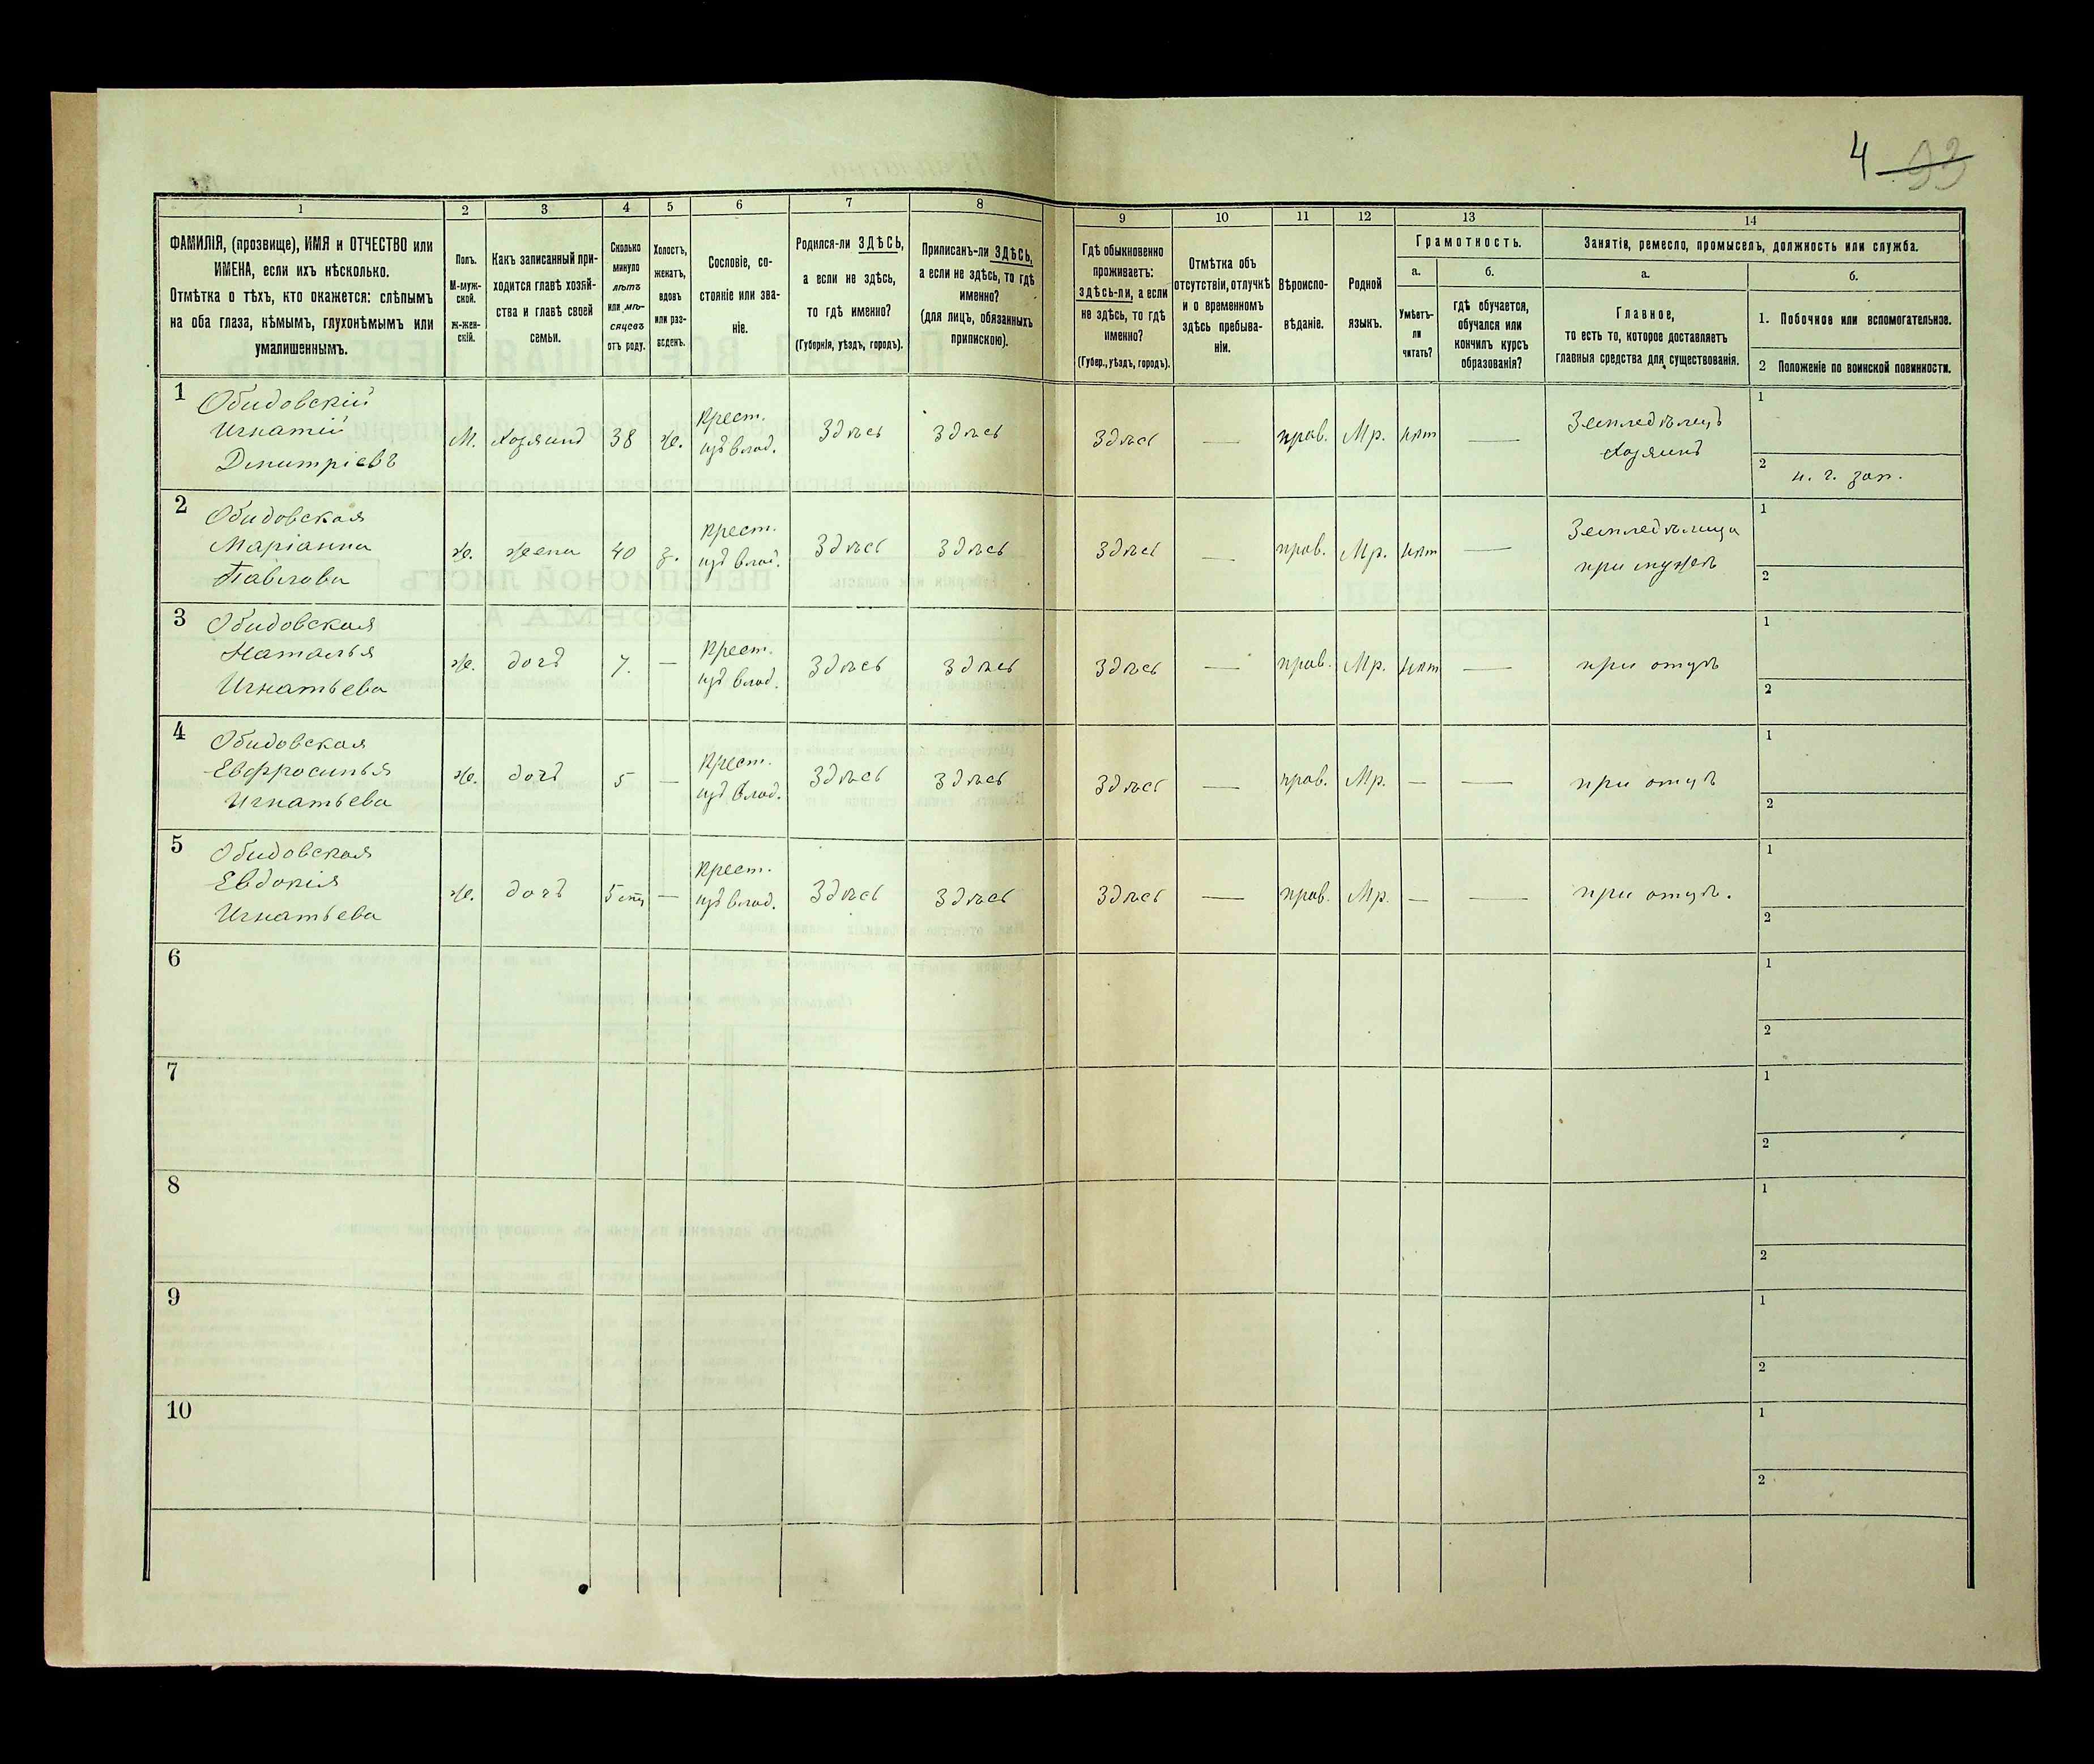 4 93
1 2 3 4 5 6 7 8 9 10 11 12 13 14
ФАМИЛІЯ, (прозвище), ИМЯ и ОТЧЕСТВО или
ИМЕНА, если ихъ нѣсколько.
Отмѣтка о тѣхъ, кто окажется: слѣпымъ
на оба глаза, нѣмымъ, глухонѣмымъ или
умалишеннымъ.
Полъ.
М-муж-
ской.
Ж-жен-
скій.
Какъ записанный при-
ходится главѣ хозяй-
ства и главѣ своей
семьи.
Сколько
минуло
лѣтъ
или мѣ-
сяцевъ
отъ роду.
Холостъ,
женатъ,
вдовъ
или раз-
веденъ.
Сословіе, со-
стояніе или зва-
ніе.
Родился-ли ЗДѢСЬ,
а если не здѣсь,
то гдѣ именно?
(Губернія, уѣздъ, городъ).
Приписанъ-ли ЗДѢСЬ,
а если не здѣсь, то гдѣ
именно?
(для лицъ, обязанныхъ
припискою).
Гдѣ обыкновенно
проживаетъ:
здѣсь-ли, а если
не здѣсь, то гдѣ
именно?
(Губер., уѣздъ, городъ).
Отмѣтка объ
отсутствіи, отлучкѣ
и о временномъ
здѣсь пребыва-
ніи.
Вѣроиспо-
вѣданіе.
Родной
языкъ.
Грамотность.
а.
Умѣетъ-
ли
читать?
б.
гдѣ обучается,
обучался или
кончилъ курсъ
образованія?
Занятія, ремесло, промыселъ, должность или служба.
а.
Главное,
то есть то, которое доставляетъ
главныя средства для существованія.
б.
1. Побочное или вспомогательное.
2 Положеніе по воинской повинности.
1
Обидовскій
Игнатій
Дмитріевъ
М.
Хозяинъ
38
ж.
Крест.
изъ влад.
Здѣсь
Здѣсь
Здѣсь
—
прав.
Мр.
нѣт
—
Земледѣлецъ
Хозяинъ
1
2
н. г. зап.
2
Обидовская
Маріанна
Павлова
ж.
жена
40
з.
Крест.
изъ влад.
Здѣсь
Здѣсь
Здѣсь
—
прав.
Мр.
нѣт
—
Земледѣлица
при мужѣ
1
2
3
Обидовская
Наталья
Игнатьева
ж.
дочъ
7.
—
Крест.
изъ влад.
Здѣсь
Здѣсь
Здѣсь
—
прав.
Мр.
нѣт
—
при отцѣ
1
2
4
Обидовская
Евфросинья
Игнатьева
ж.
дочъ
5
—
Крест.
изъ влад.
Здѣсь
Здѣсь
Здѣсь
—
прав.
Мр.
—
—
при отцѣ
1
2
5
Обидовская
Евдокія
Игнатьева
ж.
дочъ
5
—
Крест.
изъ влад.
Здѣсь
Здѣсь
Здѣсь
—
прав.
Мр.
—
—
при отцѣ.
1
2
6
1
2
7
1
2
8
1
2
9
1
2
10
1
2